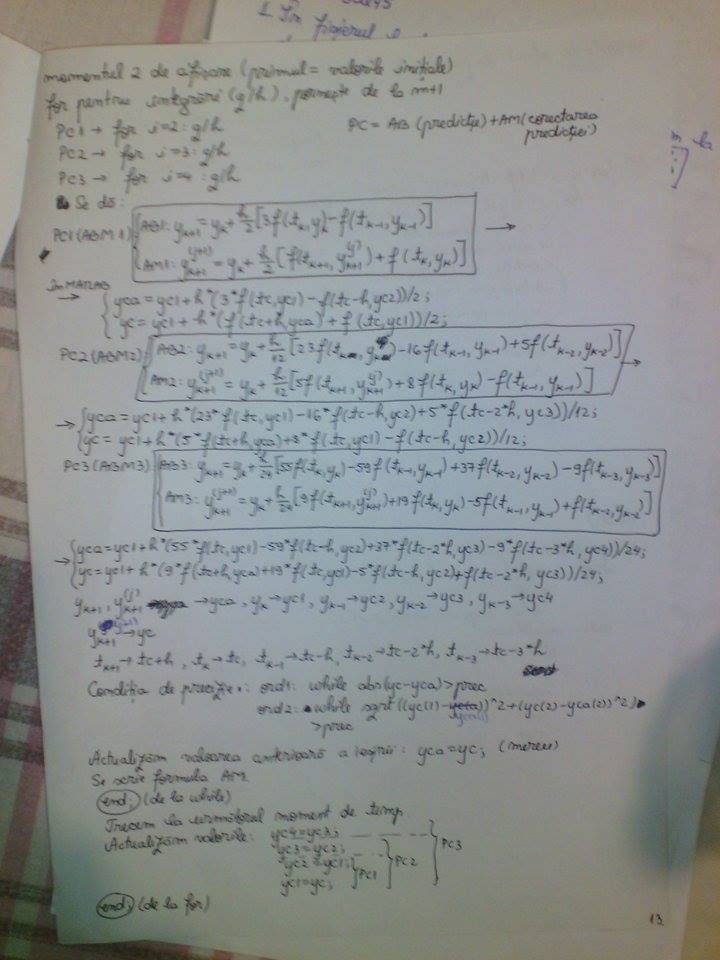 1. În fișierul
momentul 2 de afișare (primul = valorile inițiale)
for pentru integrări (g/h), pornește de la m+1
PC1 → for i=2:g/h
PC = AB (predicție) + AM (corectarea predicției)
PC2 → for i=3:g/h
PC3 → for i=4:g/h
Se dă:
PC1 (ABM1) { AB1: y_{k+1} = y_k + h/2 [3f(t_k, y_k) - f(t_{k-1}, y_{k-1})] →
AM1: y_{k+1}^{(j+1)} = y_k + h/2 [f(t_{k+1}, y_{k+1}^{(j)}) + f(t_k, y_k)]
În MATLAB
→ { yca = yc1 + h*(3*f(tc,yc1) - f(tc-h,yc2))/2;
yc = yc1 + h*(f(tc+h,yca) + f(tc,yc1))/2;
PC2 (ABM2) { AB2: y_{k+1} = y_k + h/12 [23f(t_k, y_k) - 16f(t_{k-1}, y_{k-1}) + 5f(t_{k-2}, y_{k-2})] →
AM2: y_{k+1}^{(j+1)} = y_k + h/12 [5f(t_{k+1}, y_{k+1}^{(j)}) + 8f(t_k, y_k) - f(t_{k-1}, y_{k-1})]
→ { yca = yc1 + h*(23*f(tc,yc1) - 16*f(tc-h,yc2) + 5*f(tc-2*h,yc3))/12;
yc = yc1 + h*(5*f(tc+h,yca) + 8*f(tc,yc1) - f(tc-h,yc2))/12;
PC3 (ABM3) { AB3: y_{k+1} = y_k + h/24 [55f(t_k, y_k) - 59f(t_{k-1}, y_{k-1}) + 37f(t_{k-2}, y_{k-2}) - 9f(t_{k-3}, y_{k-3})]
AM3: y_{k+1}^{(j+1)} = y_k + h/24 [9f(t_{k+1}, y_{k+1}^{(j)}) + 19f(t_k, y_k) - 5f(t_{k-1}, y_{k-1}) + f(t_{k-2}, y_{k-2})]
→ { yca = yc1 + h*(55*f(tc,yc1) - 59*f(tc-h,yc2) + 37*f(tc-2*h,yc3) - 9*f(tc-3*h,yc4))/24;
yc = yc1 + h*(9*f(tc+h,yca) + 19*f(tc,yc1) - 5*f(tc-h,yc2) + f(tc-2*h,yc3))/24;
y_{k+1}, y_{k+1}^{(j)} → yca, y_k → yc1, y_{k-1} → yc2, y_{k-2} → yc3, y_{k-3} → yc4
y_{k+1}^{(j+1)} → yc
t_{k+1} → tc+h, t_k → tc, t_{k-1} → tc-h, t_{k-2} → tc-2*h, t_{k-3} → tc-3*h
Condiția de precizie: ord1: while abs(yc-yca)>prec
ord2: while sqrt((yc(1)-yca(1))^2+(yc(2)-yca(2))^2)
>prec
Actualizăm valoarea anterioară a ieșirii: yca=yc; (mereu)
Se scrie formula AM
end; (de la while)
Trecem la următorul moment de timp
Actualizăm valorile: yc4=yc3;
yc3=yc2; } PC3
yc2=yc1; } PC2
yc1=yc; } PC1
end; (de la for)
13